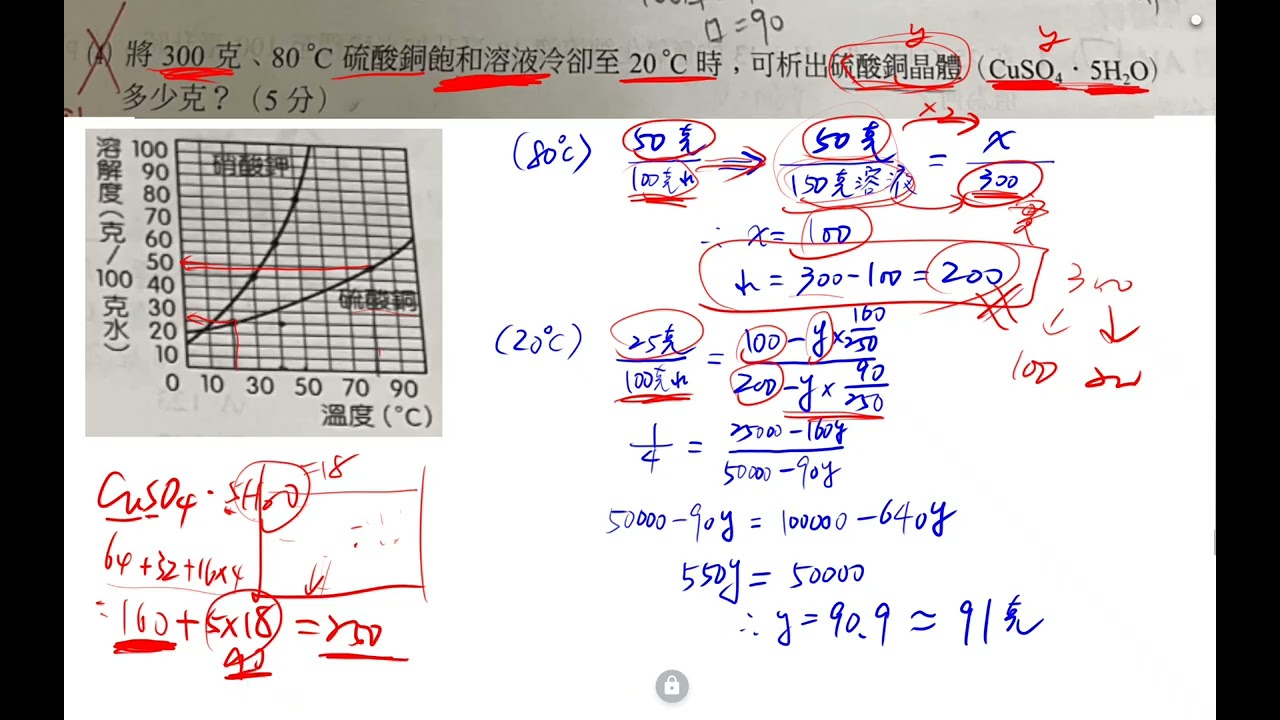 □=90
(4) 將 300 克、80 ℃ 硫酸銅飽和溶液冷卻至 20 ℃ 時，可析出硫酸銅晶體 (CuSO₄．5H₂O)
多少克？（5 分）
y
y
溶解度（克／100克水）
100
90
80
70
60
50
40
30
20
10
0 10 30 50 70 90
溫度(℃)
硝酸鉀
硫酸銅
(80℃) 50克/100克水 ⇒ 50克/150克溶液 = x/300
×2
∴ x = 100
水 = 300-100 = 200
300
100 200
(20℃) 25克/100克水 = (100-y×160/250)/(200-y×90/250)
1/4 = (25000-160y)/(50000-90y)
50000-90y = 100000-640y
550y = 50000
∴ y = 90.9 ≈ 91克
CuSO4·5H2O =18
64+32+16×4
=160+5×18=250
90